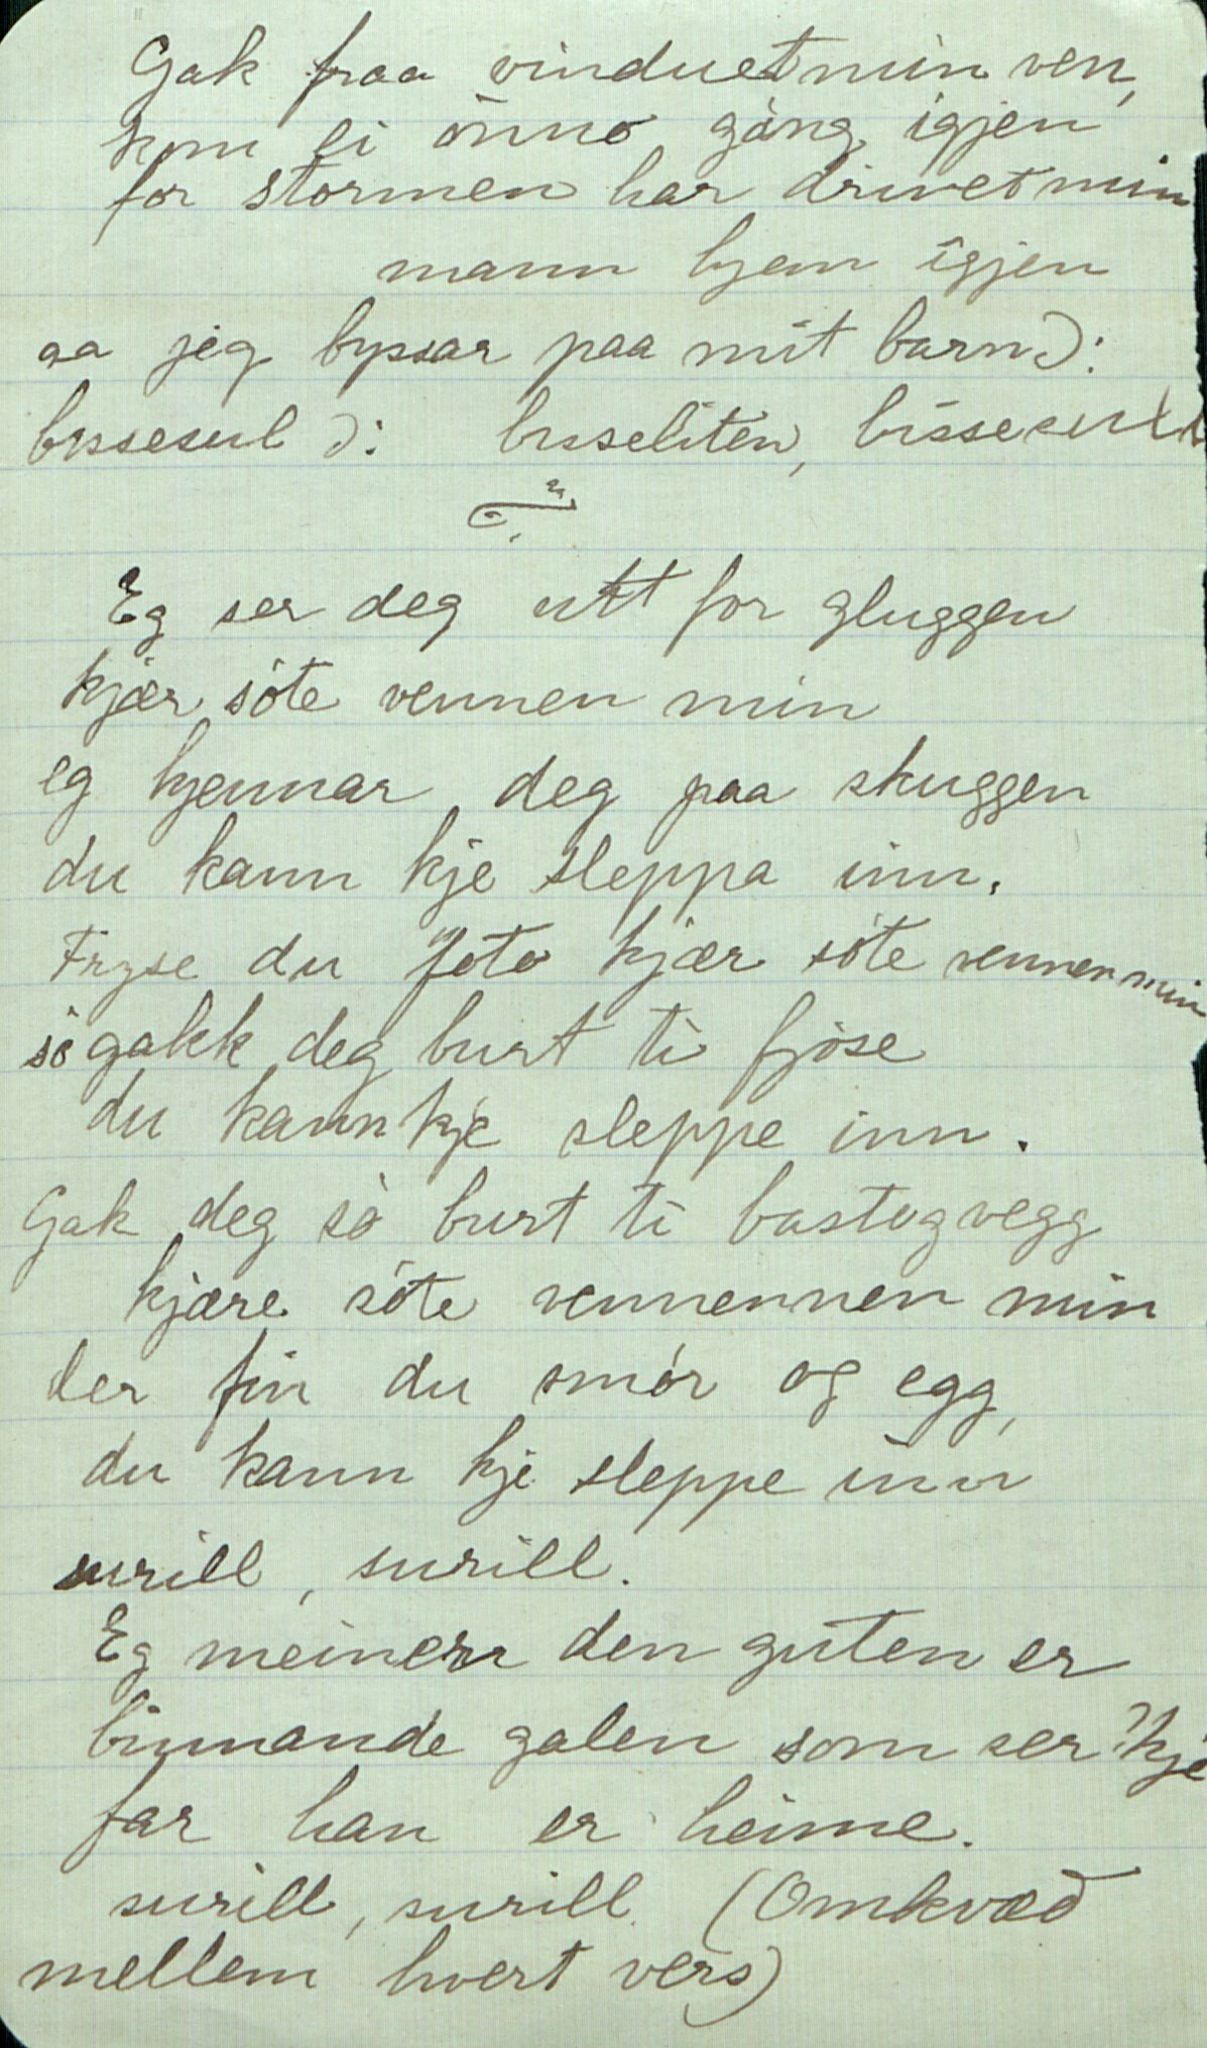 Gak fraa vinduet min ven,
kom ei önno gång igjen
for stormen har drivet min
mann hjem igjen
aa jeg byssar paa mit barn ):
bissesul ): bisseliten, bissesull
Eg ser deg utt for gluggen
kjær söte vennen min
eg kjennar deg paa skuggen
du kann kje sleppa inn.
Fryse du foto kjær söte vennen min
så gakk deg burt ti fjöse
du kann kje sleppe inn.
Gak deg så burt ti bastogvegg
kjære söte vennennen min
der fin du smör og egg,
du kann kje sleppe inn
surill, surill.
Eg meiner den guten er
binnande galen som ser kje
far han er heime.
surill, surill. (Omkvæd
mellem hvert vers)